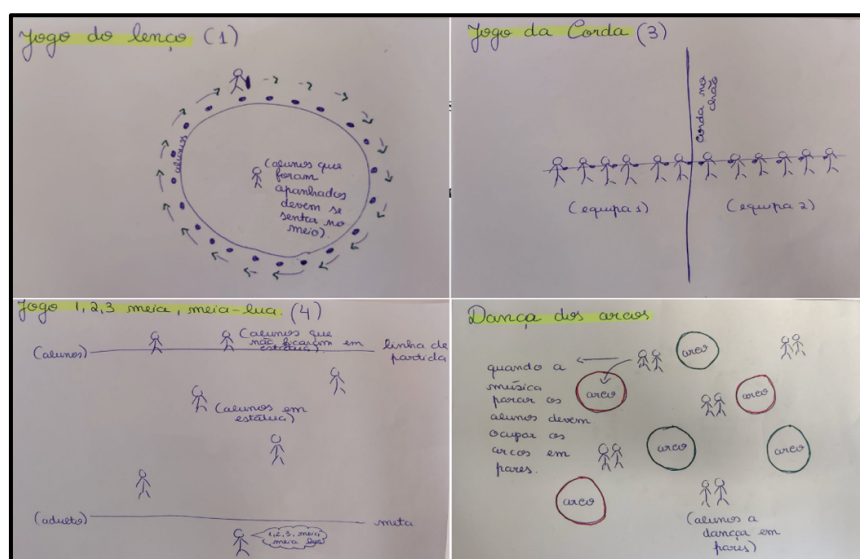 Jogo do lenço (1)
alunos
(alunos que
foram
apanhados
devem se
sentar no
meio).
Jogo da Corda (3)
corda no
chão
(equipa 1)
(equipa 2)
Jogo 1, 2, 3 meia, meia-lua. (4)
(alunos que
não ficaram em
estátua)
(alunos)
linha de
partida
(alunos em
estátua)
(adulto)
meta
1, 2, 3, meia
meia lua
Dança dos arcos
quando a
música
parar os
alunos devem
ocupar os
arcos em
pares.
arco
arco
arco
arco
arco
arco
(alunos a
dança em
pares)